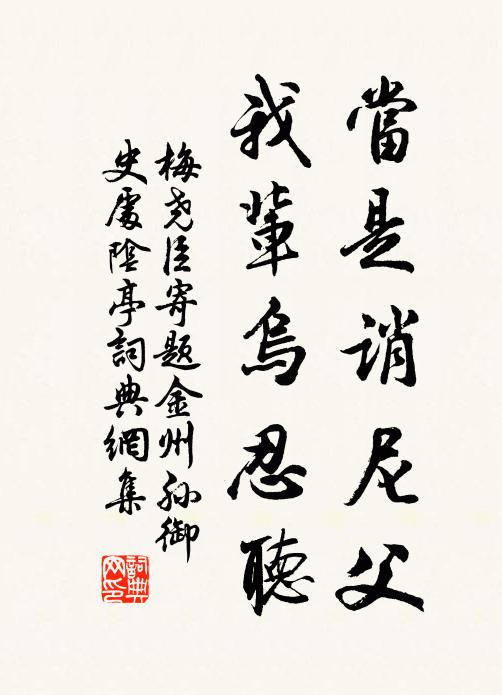 當是誚尼父
我輩烏忍聽
梅堯臣寄題金州孫御
史處陰亭詞典網集
詞典網印